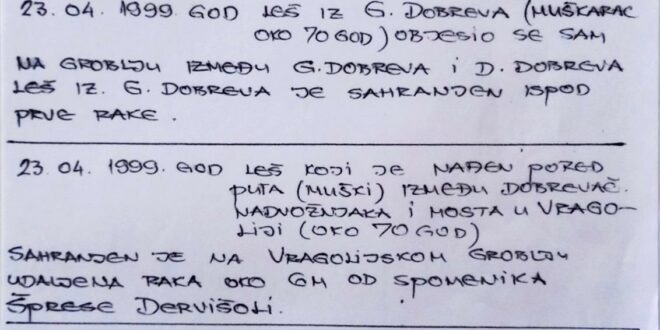 23.04.1999. GOD LEŠ IZ G. DOBREVA (MUŠKARAC
OKO 70 GOD) OBJESIO SE SAM
NA GROBLJU IZMEĐU G. DOBREVA I D. DOBREVA
LEŠ IZ. G. DOBREVA JE SAHRANJEN ISPOD
PRVE RAKE.
23.04. 1999. GOD LEŠ KOJI JE NAĐEN PORED
PUTA (MUŠKI) IZMEĐU DOBREVAČ.
NADVOŽNJAKA I MOSTA U VRAGO-
LIJI (OKO 70 GOD)
SAHRANJEN JE NA VRAGOLIJSKOM GROBLJU
UDALJENA RAKA OKO 6M OD SPOMENIKA
ŠPRESE DERVIŠOLI.